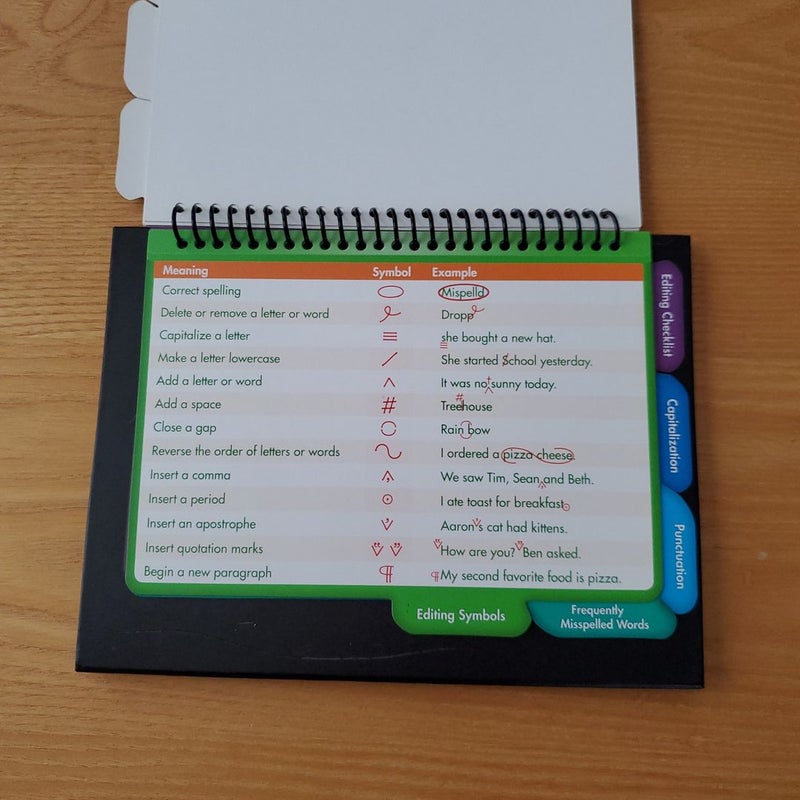 Meaning Symbol Example
Correct spelling Mispelld
Delete or remove a letter or word Dropp
Capitalize a letter ≡ she bought a new hat.
Make a letter lowercase / She started School yesterday.
Add a letter or word ^ It was not sunny today.
Add a space # Tree#house
Close a gap Rain bow
Reverse the order of letters or words I ordered a pizza cheese.
Insert a comma We saw Tim, Sean, and Beth.
Insert a period ⊙ I ate toast for breakfast⊙
Insert an apostrophe Aaron's cat had kittens.
Insert quotation marks "How are you?" Ben asked.
Begin a new paragraph ¶ ¶My second favorite food is pizza.
Editing Checklist
Capitalization
Punctuation
Editing Symbols
Frequently
Misspelled Words